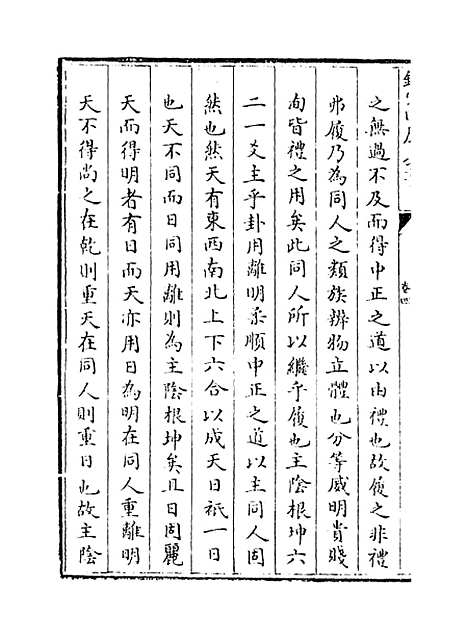 欽定四庫全書
卷四
之無過不及而得中正之道以由禮也故履之非禮
弗履乃為同人之類族辨物立體也分等威明貴賤
洵皆禮之用矣此同人所以繼乎履也主陰根坤六
二一爻主乎卦用離明柔順中正之道以主同人固
然也然天有東西南北上下六合以成天日祇一日
也天不同而日同用離則為主陰根坤矣且日固麗
天而得明者有日而天亦用日為明在同人重離明
天不得尚之在乾則重天在同人則重日也故主陰